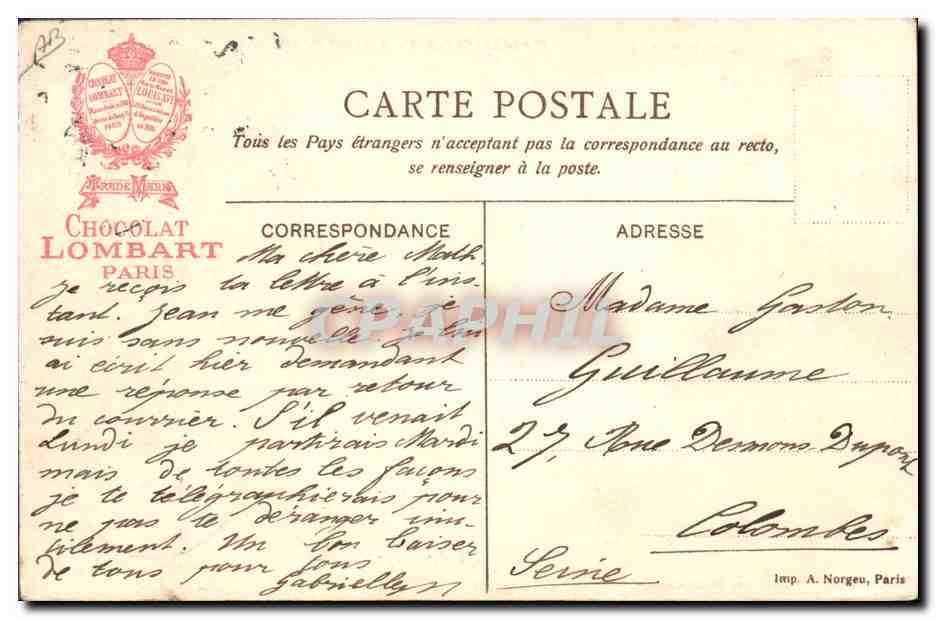 AB
CHOCOLAT
LOMBART
PARIS
LOUIS XVI
TRADE MARK
CHOCOLAT
LOMBART
PARIS
CARTE POSTALE
Tous les Pays étrangers n'acceptant pas la correspondance au recto,
se renseigner à la poste.
CORRESPONDANCE
Ma chère Math.
je reçois ta lettre à l'ins-
tant. Jean me gêne, je
suis sans nouvelle je lui
ai écrit hier demandant
une réponse par retour
du courrier. S'il venait
Lundi je partirais Mardi
mais de toutes les façons
je te télégraphierais pour
ne pas te déranger inu-
tilement. Un bon baiser
de tous pour tous
Gabrielle
ADRESSE
Madame Gaston
Guillaume
27, Rue Desmons Dupont
Colombes
Seine
Imp. A. Norgeu, Paris
CPAPHIL